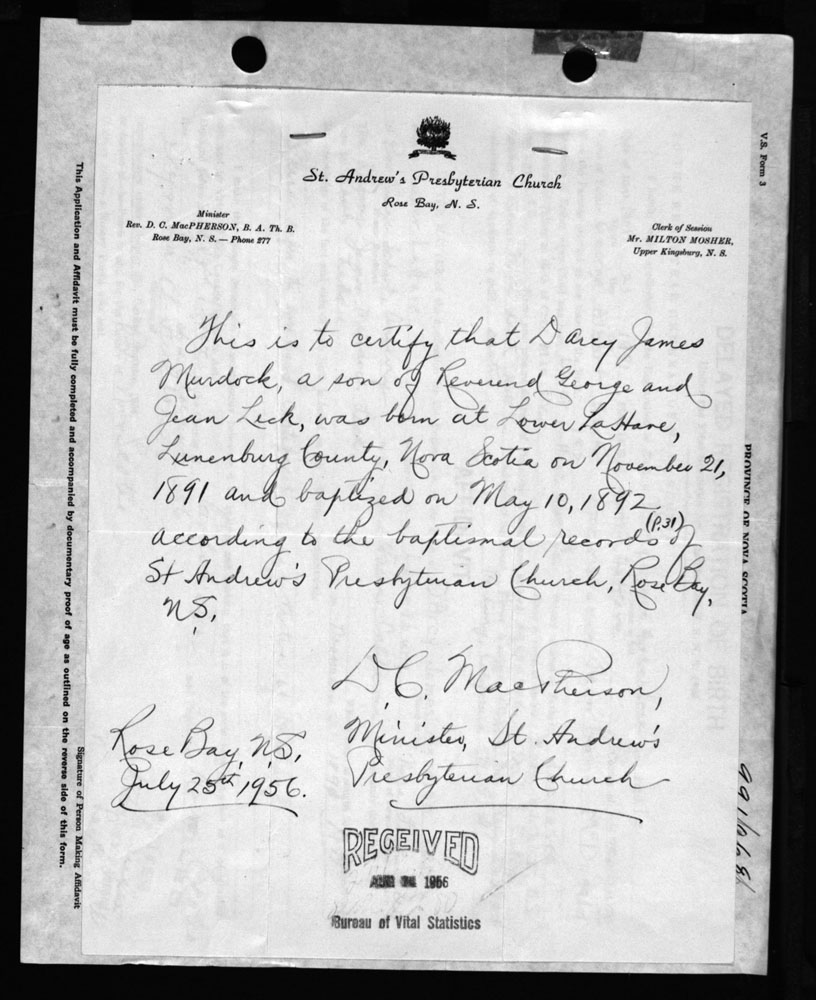 St. Andrew's Presbyterian Church
Rose Bay, N. S.
Minister
Rev. D. C. MacPHERSON, B. A. Th. B.
Rose Bay, N. S. — Phone 277
Clerk of Session
Mr. MILTON MOSHER,
Upper Kingsburg, N. S.
This is to certify that Darcy James
Murdock, a son of Reverend George and
Jean Leck, was born at Lower LaHave,
Lunenburg County, Nova Scotia on November 21,
1891 and baptized on May 10, 1892
according to the baptismal records (P.31) of
St Andrew's Presbyterian Church, Rose Bay,
N.S.
D.C. MacPherson,
Minister, St. Andrew's
Presbyterian Church
Rose Bay, N.S.
July 25th, 1956.
RECEIVED
1956
Bureau of Vital Statistics
V.S. Form 3
PROVINCE OF NOVA SCOTIA
This Application and Affidavit must be fully completed and accompanied by documentary proof of age as outlined on the reverse side of this form.
Signature of Person Making Affidavit